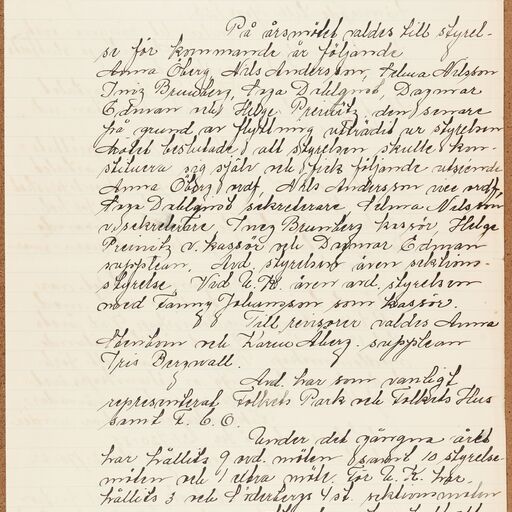 På årsmötet valdes till styrel-
se för kommande år följande
Anna Öberg, Nils Andersson, Selma Nilsson
Inez Brunberg, Dahlqvist, Dagmar
Edman och Helge Premitz, den senare
på grund av flyttning utträdit ur styrelsen
Mötet beslutade att styrelsen skulle kon-
stituera sig själv och fick följande utseende
Anna Öberg ordf, Nils Andersson vice ordf,
Dahlqvist sekreterare Selma Nilsson
v. sekreterare Inez Brunberg kassör, Helge
Premitz v. kassör och Dagmar Edman
supplean. Avd. styrelsen även sektions-
styrelse. Vid U.K. även avd. styrelsen
med Fanny Johansson som kassör.
Till revisorer valdes Anna
och Karin Åberg. supplean
Iris Bergwall.
Avd. har som vanligt
representerat Folkets Park och Folkets Hus
samt F. C. O.
Under det gångna året
har hållits 9 ord. möten samt 10 styrelse
möten och 1 extra möte. För U.K. har
hållits 3 och Söderbergs 4 st. sektionsmöten